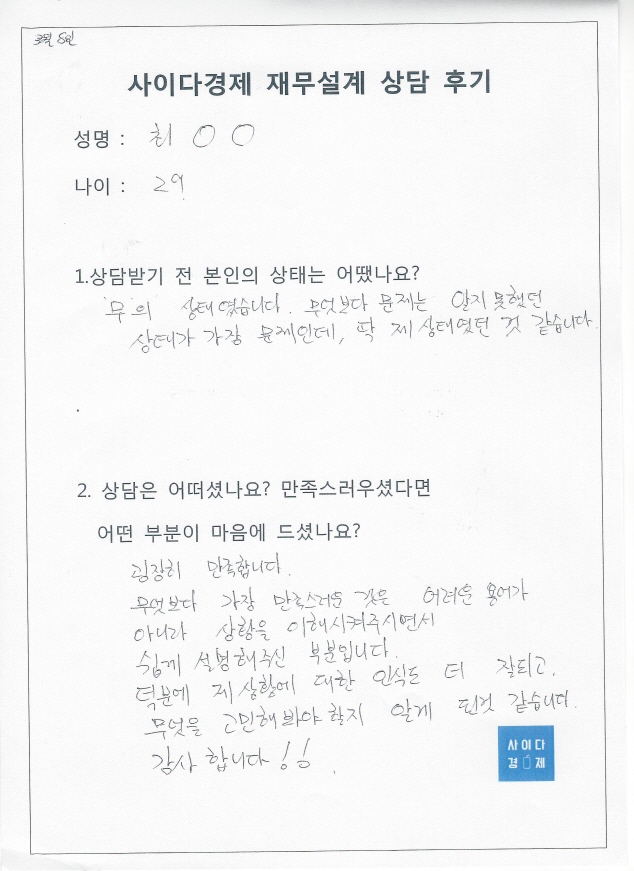 3월 8일
사이다경제 재무설계 상담 후기
성명 : 최 ○ ○
나이 : 29
1.상담받기 전 본인의 상태는 어땠나요?
'무'의 상태였습니다. 무엇보다 문제는 알지 못했던
상태가 가장 문제인데, 딱 제 상태였던 것 같습니다.
2. 상담은 어떠셨나요? 만족스러우셨다면
어떤 부분이 마음에 드셨나요?
굉장히 만족합니다.
무엇보다 가장 만족스러운 것은 어려운 용어가
아니라 상황을 이해시켜주시면서
쉽게 설명해주신 부분입니다.
덕분에 제 상황에 대한 인식도 더 잘되고,
무엇을 고민해봐야 할지 알게 된것 같습니다.
감사합니다!!
사이다
경제